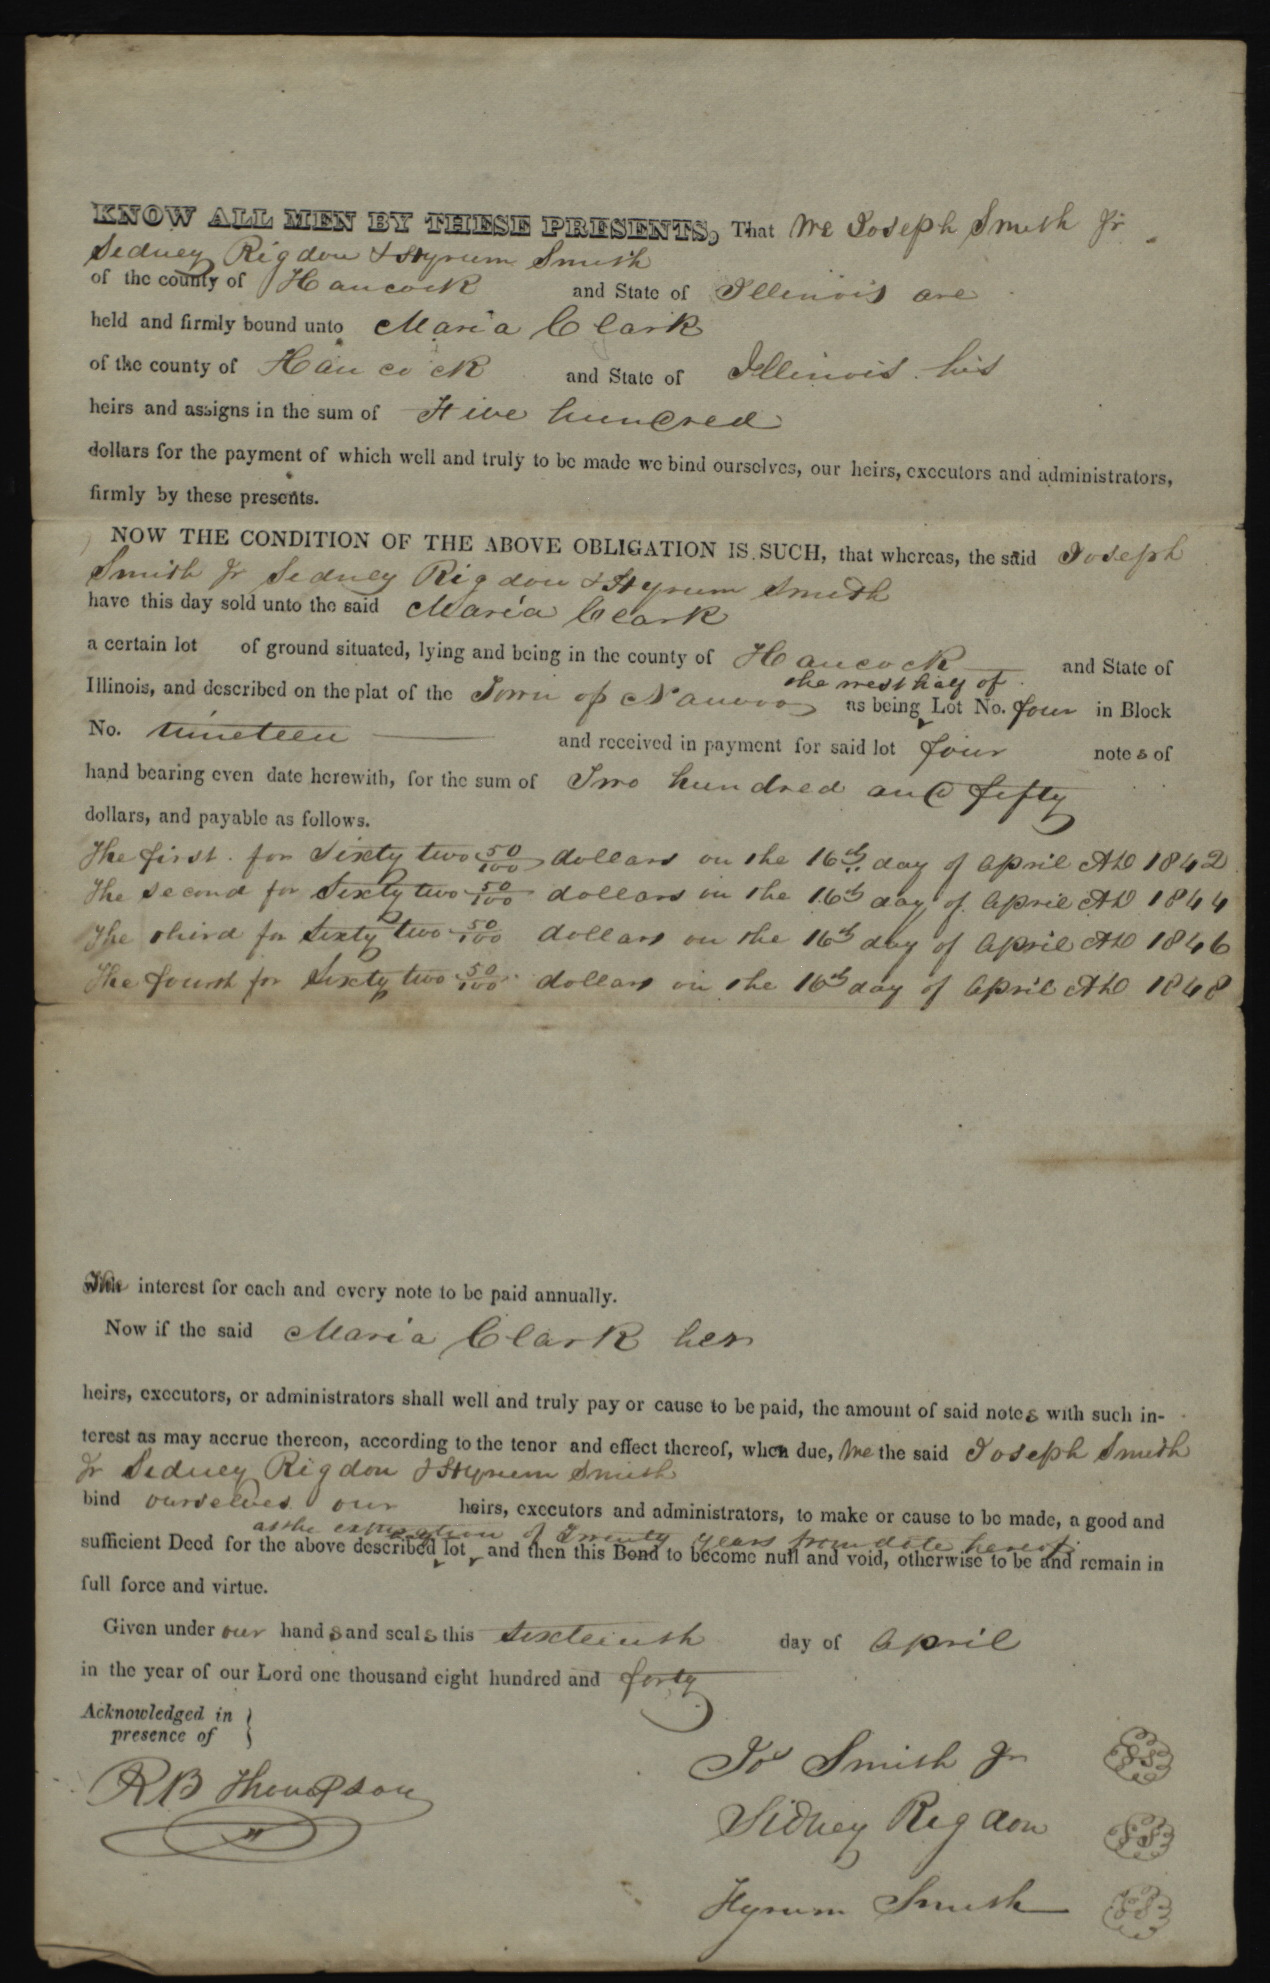 KNOW ALL MEN BY THESE PRESENTS, That We Joseph Smith Jr
Sidney Rigdon & Hyrum Smith
of the county of Hancock and State of Illinois are
held and firmly bound unto Maria Clark
of the county of Hancock and State of Illinois his
heirs and assigns in the sum of Five hundred
dollars for the payment of which well and truly to be made we bind ourselves, our heirs, executors and administrators,
firmly by these presents.
NOW THE CONDITION OF THE ABOVE OBLIGATION IS SUCH, that whereas, the said Joseph
Smith Jr Sidney Rigdon & Hyrum Smith
have this day sold unto the said Maria Clark
a certain lot of ground situated, lying and being in the county of Hancock and State of
the west half of
Illinois, and described on the plat of the Town of Nauvoo as being Lot No. four in Block
No. nineteen and received in payment for said lot four notes of
hand bearing even date herewith, for the sum of Two hundred and fifty
dollars, and payable as follows.
The first for Sixty two 50/100 dollars on the 16th day of April AD 1842
The second for Sixty two 50/100 dollars on the 16th day of April AD 1844
The third for Sixty two 50/100 dollars on the 16th day of April AD 1846
The fourth for Sixty two 50/100 dollars on the 16th day of April AD 1848
The interest for each and every note to be paid annually.
Now if the said Maria Clark her
heirs, executors, or administrators shall well and truly pay or cause to be paid, the amount of said notes with such in-
terest as may accrue thereon, according to the tenor and effect thereof, when due, We the said Joseph Smith
Jr Sidney Rigdon & Hyrum Smith
bind ourselves our heirs, executors and administrators, to make or cause to be made, a good and
at the expiration of Twenty years from date hereof
sufficient Deed for the above described lot and then this Bond to become null and void, otherwise to be and remain in
full force and virtue.
Given under our hands and seals this sixteenth day of April
in the year of our Lord one thousand eight hundred and forty
Acknowledged in
presence of
R B Thompson
Jos Smith Jr
Sidney Rigdon
Hyrum Smith